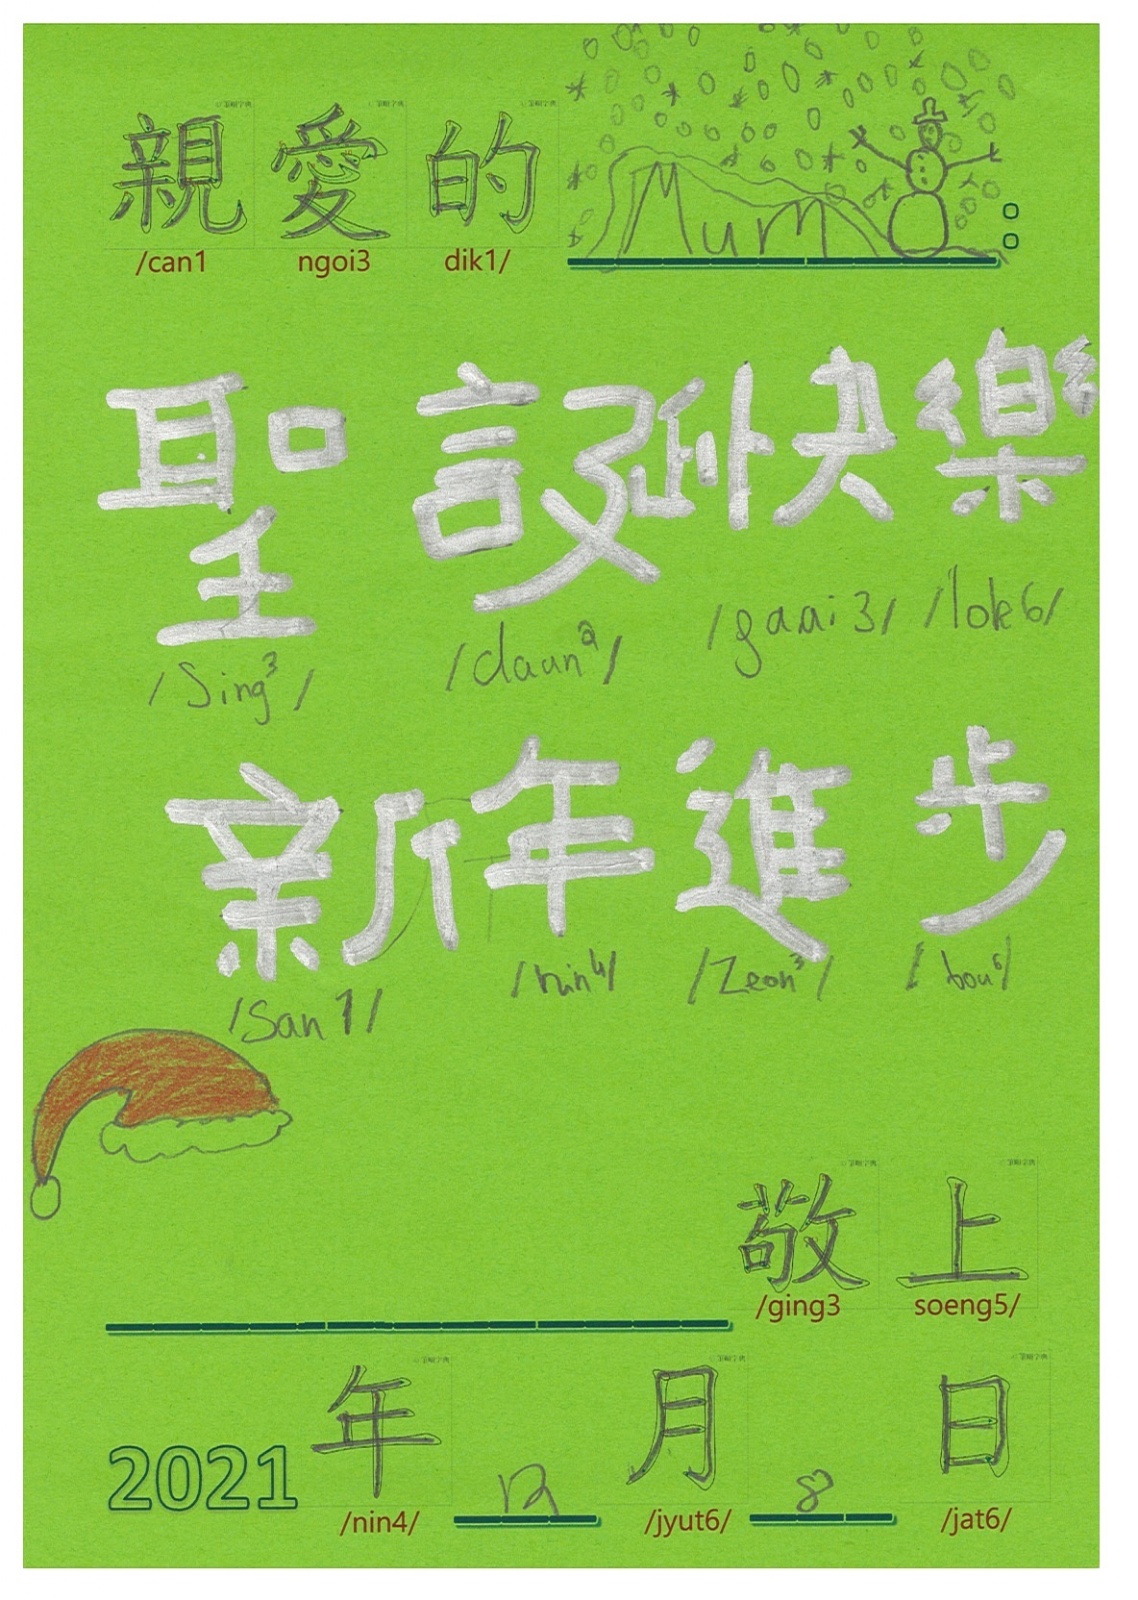 親愛的 Mum：
/can1 ngoi3 dik1/
聖誕快樂
/Sing3/ /daan2/ /gaai3/ /lok6/
新年進步
/San1/ /nin4/ /Zeon3/ /bou6/
敬上
/ging3 soeng5/
2021年12月8日
/nin4/ /jyut6/ /jat6/